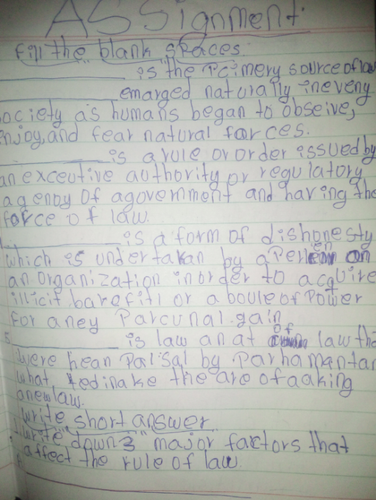 ASSignment.
Fill the blank spaces.
is the Primery source of law
emarged naturally in eveny
society as humans began to obseive,
enjoy, and fear natural forces.
is a rule or order issued by
an exceutive authority or regulatory
agency of agovernment and having the
force of law.
is a form of dishonesty
which is undertakan by a Person on
an organization inorder to acquire
illicit barefitl or a boule of Power
for aney Parcunal gain
is law an at of law tha
were hean Pal'sal by Parhamantar
what, the are of aaking
anew law.
write short answer.
write down 3 major factors that
affect the rule of law.